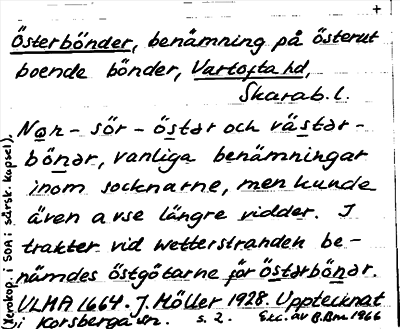 +
Österbönder, benämning på österut
boende bönder, Vartofta hd,
Skarab. l.
Nọr - sör - östər och västər -
bönər, vanliga benämningar
inom socknarne, men kunde
även avse längre vidder. I
trakter vid Wetterstranden be-
nämdes östgötarne för östərbönər.
ULMA 1664. J. Möller 1928. Upptecknat
i Korsberga sn. s. 2. Exc. av B.Bm 1966
(Xerokop. i SOA i särsk. kapsel).